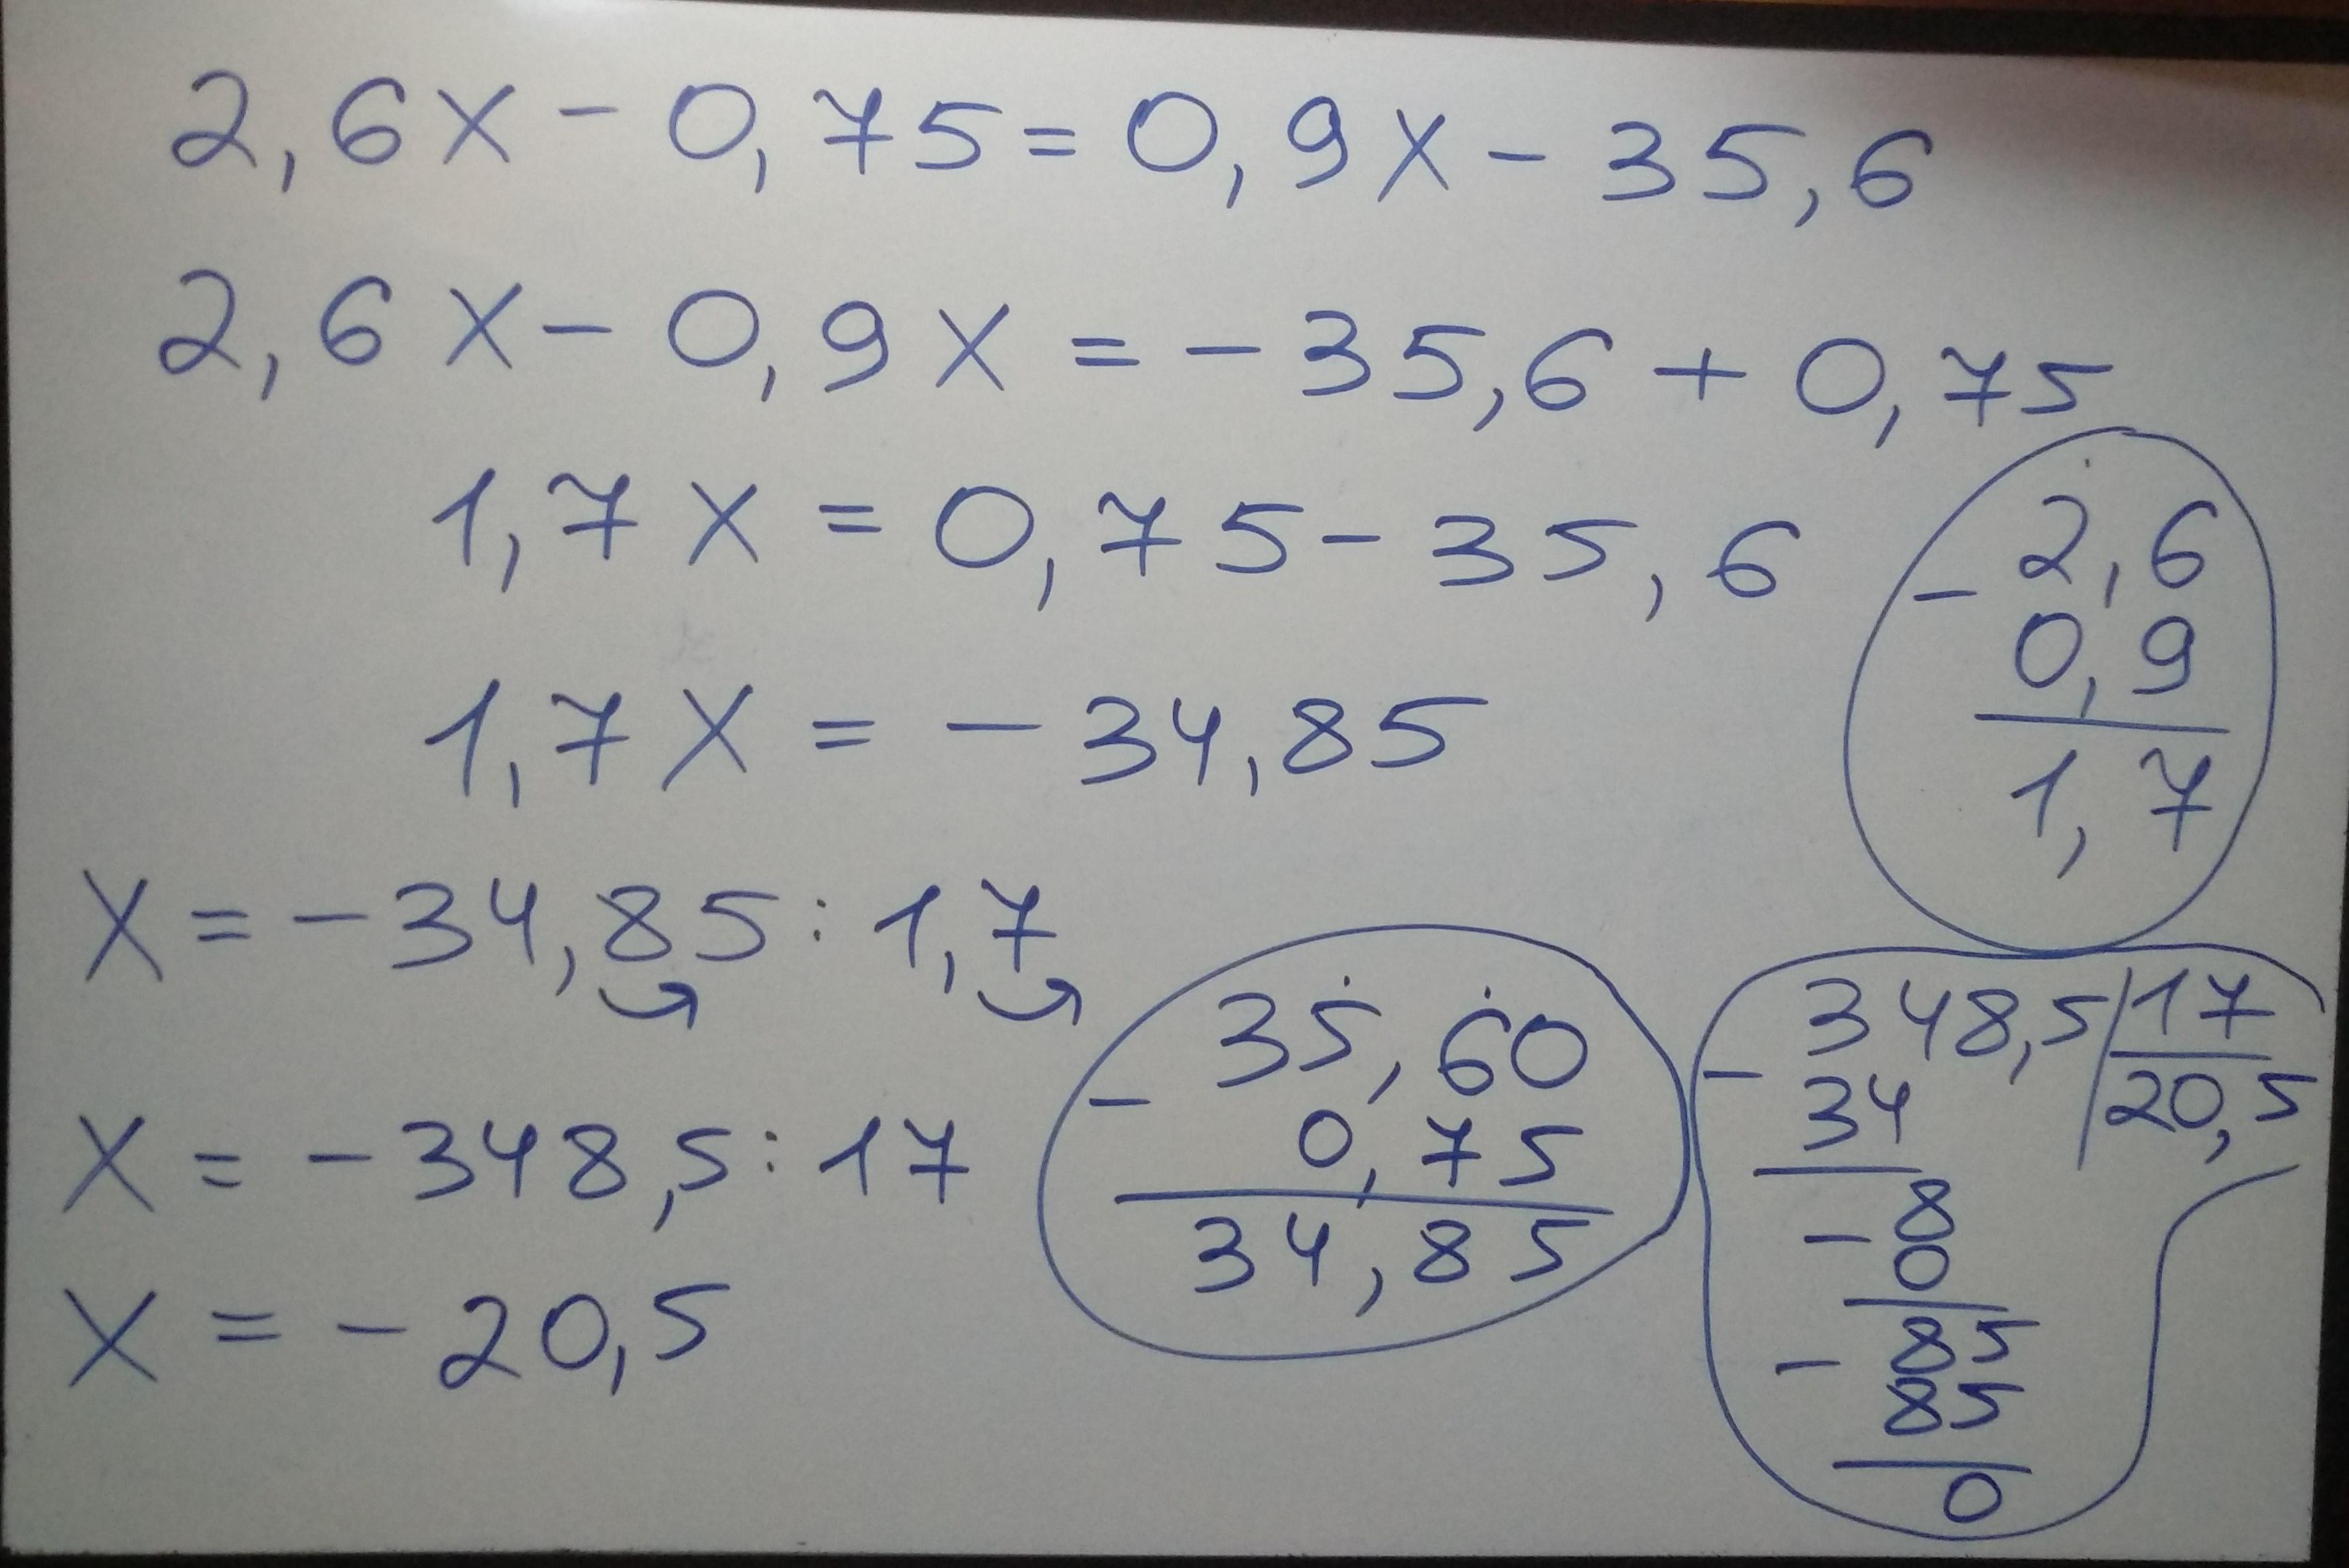 2,6x - 0,75 = 0,9x - 35,6
2,6x - 0,9x = - 35,6 + 0,75
1,7x = 0,75 - 35,6
1,7x = - 34,85
x = - 34,85 : 1,7
x = - 348,5 : 17
x = - 20,5
- 2,6
0,9
1,7
- 35,60
0,75
34,85
- 348,5 | 17
34 | 20,5
- 8
0
- 85
85
0